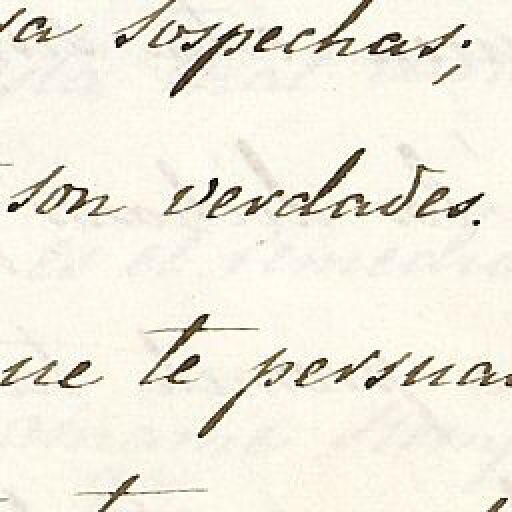 ya sospechas;
son verdades.
ue te persua